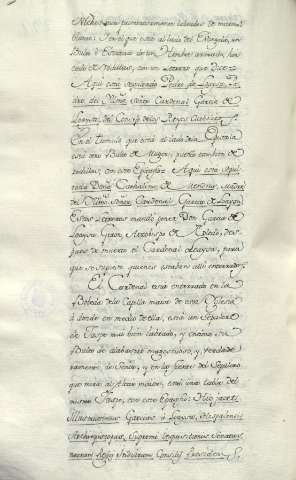 blancos: En el que está al lado del Evangelio, un
Bulto
de rodillas, con un Letrero que dice:
Aquí está sepultado Pedro de Loaysa, Pa-
dre del Illmo. Señor Cardenal García de
Loaysa, del Consejo de los Reyes Católicos.
En el Lucillo, que está al lado de la Epístola
está otro Bulto de Muger, puesto también de
rodillas, con este Epitaphio: Aquí está sepul-
tada Doña Catalina de Mendoza, Madre
del Illmo. Señor Cardenal García de Loaysa.
Estos Letreros mandó poner Don García de
Loaysa Girón, Arzobispo de Toledo, des-
pues de muerto el Cardenal Loaysa, para
que se supiese quienes estaban allí enterrados.
El Cardenal está enterrado en la
Bóveda de la Capilla mayor de esta Iglesia
a donde en medio de ella, está un Sepulcro
de Jaspe muy bien labrado, y encima su
Bulto de alabastro magestuoso, y verdade-
ramente de Señor, y en la frente del Sepulcro
que mira al Altar mayor, está una tabla del
mismo Jaspe, con este Epitaphio: Hic jacet
Illustrissimus Garcias a Loaysa, Hispalensis
Archiepiscopus, Supremi Inquisitionis Senatus,